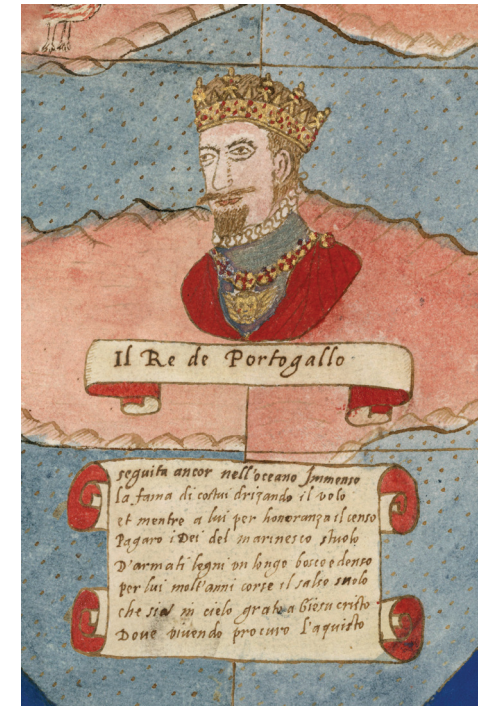 Il Re de Portogallo
seguita ancor nell'oceano Immenso
la fama di costui drizando il volo
et mentro a lui per honoranza il censo
Pagaro i Dei del marinesco stuolo
D'armati legni un longo bosco e denso
per lui molt'anni corse il salso suolo
che sia in cielo grato a Giesu cristo
Dove vivendo procuro l'aquisto